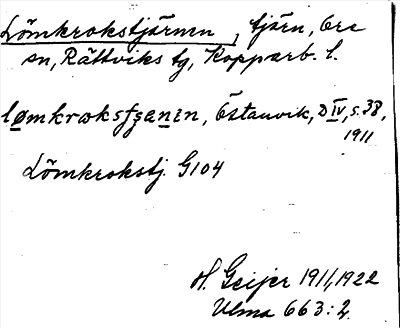 Lömkrokstjärnen, tjärn, Ore
sn, Rättviks tg, Kopparb. l.
lømkrokstʃæ̱nɪn, Östanvik, D IV, s. 38,
1911
Lömkrokstj. G104
H. Geijer 1911, 1922
Ulma 663:2.